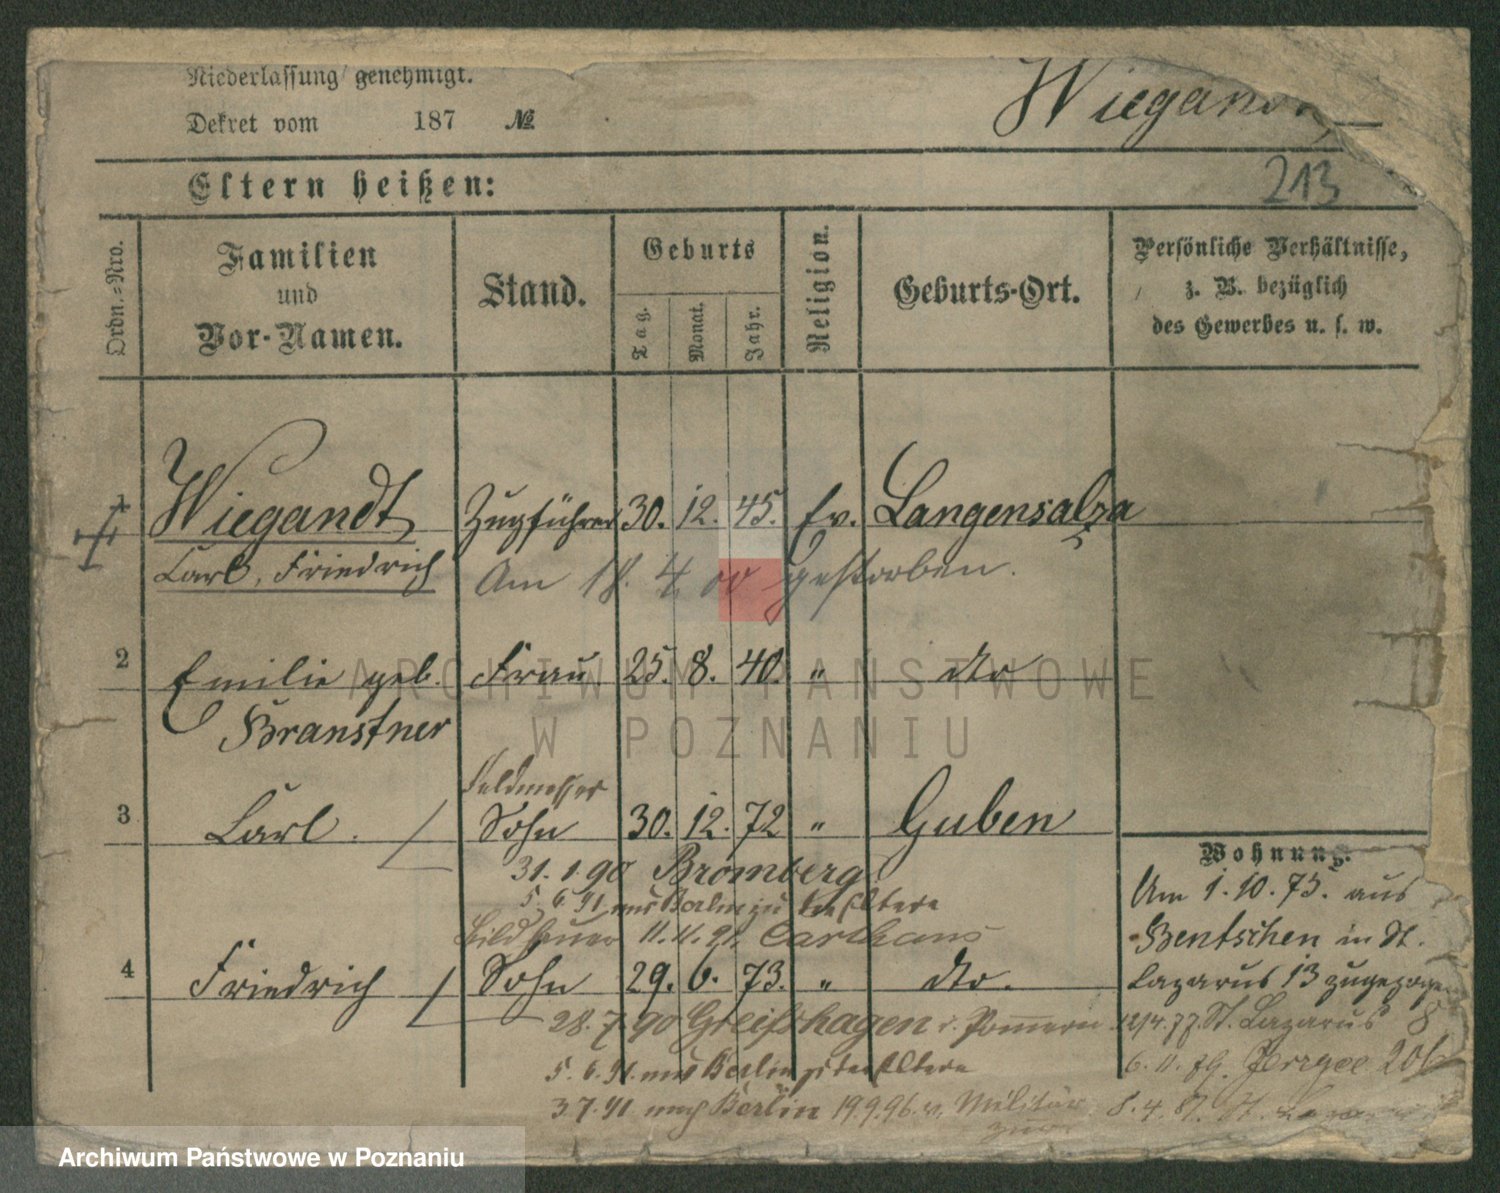 Niederlassung genehmigt.
Dekret vom 187 №
Wiegandt
213
Eltern heißen:
Ordn.-Nro.
Familien
und
Vor-Namen.
Stand.
Geburts
Tag.
Monat.
Jahr.
Religion.
Geburts-Ort.
Persönliche Verhältnisse,
z. B. bezüglich
des Gewerbes u. s. w.
1 Wiegandt Zugführer 30. 12. 45. Ev. Langensalza
Carl, Friedrich Am 18. 4. 00 gestorben.
2 Emilie geb. Frau. 25. 8. 40. " dto
Branstner
Feldmesser
3 Carl. Sohn 30. 12. 72 " Guben
31. 1. 90 Bromberg.
5. 6. 91. aus Berlin zu den Eltern
Bildhauer 11. 11. 91. Carthaus
4 Friedrich Sohn 29. 6. 73. " dto.
28. 7. 90 Greifshagen i. Pommern
5. 6. 91. aus Berlin zu den Eltern
3. 7. 91 nach Berlin 19.9.96. v. Militär
Wohnung.
Am 1. 10. 75. aus
Bentschen in St.
Lazarus 13 zugezogen
12/4. 77. St. Lazarus 8
6. 11. 79. Jerzyce 20b
8. 4. 81. St.
ARCHIWUM PAŃSTWOWE
W POZNANIU
Archiwum Państwowe w Poznaniu